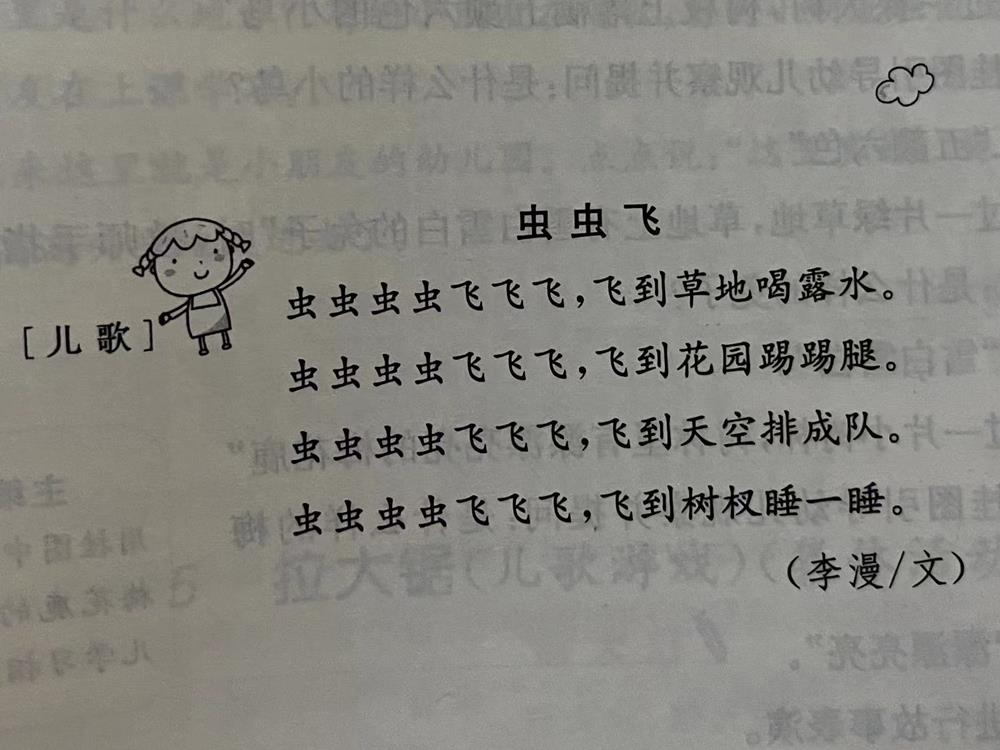 虫虫飞
虫虫虫虫飞飞飞,飞到草地喝露水。
[儿歌]
虫虫虫虫飞飞飞,飞到花园踢踢腿。
虫虫虫虫飞飞飞,飞到天空排成队。
虫虫虫虫飞飞飞,飞到树杈睡一睡。
(李漫/文)